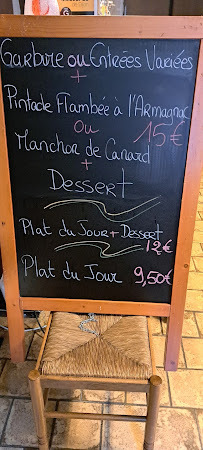 Garbure ou Entrées Variées
+
Pintade Flambée à l'Armagnac
ou 15€
Manchon de Canard
+
Dessert
Plat du Jour + Dessert
12€
Plat du Jour 9,50€